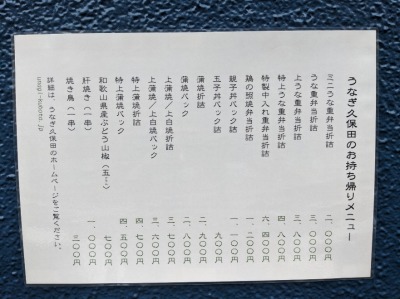 うなぎ久保田のお持ち帰りメニュー
ミニうな重弁当折詰 二、〇〇〇円
うな重弁当折詰 三、〇〇〇円
上うな重弁当折詰 三、八〇〇円
特上うな重弁当折詰 四、八〇〇円
特製中入れ重弁当折詰 六、四〇〇円
鶏の照焼弁当折詰 一、二〇〇円
親子丼パック 一、一〇〇円
玉子丼パック 九〇〇円
蒲焼折詰 二、九〇〇円
蒲焼パック 二、七〇〇円
上蒲焼/上白焼折詰 三、七〇〇円
上蒲焼/上白焼パック 三、六〇〇円
特上蒲焼折詰 四、七〇〇円
特上蒲焼パック 四、五〇〇円
和歌山県産ぶどう山椒(五g) 七〇〇円
肝焼き(一串) 一、〇〇〇円
焼き鳥(一串) 三〇〇円
詳細は、うなぎ久保田のホームページをご覧ください。
unagi-kubota.jp